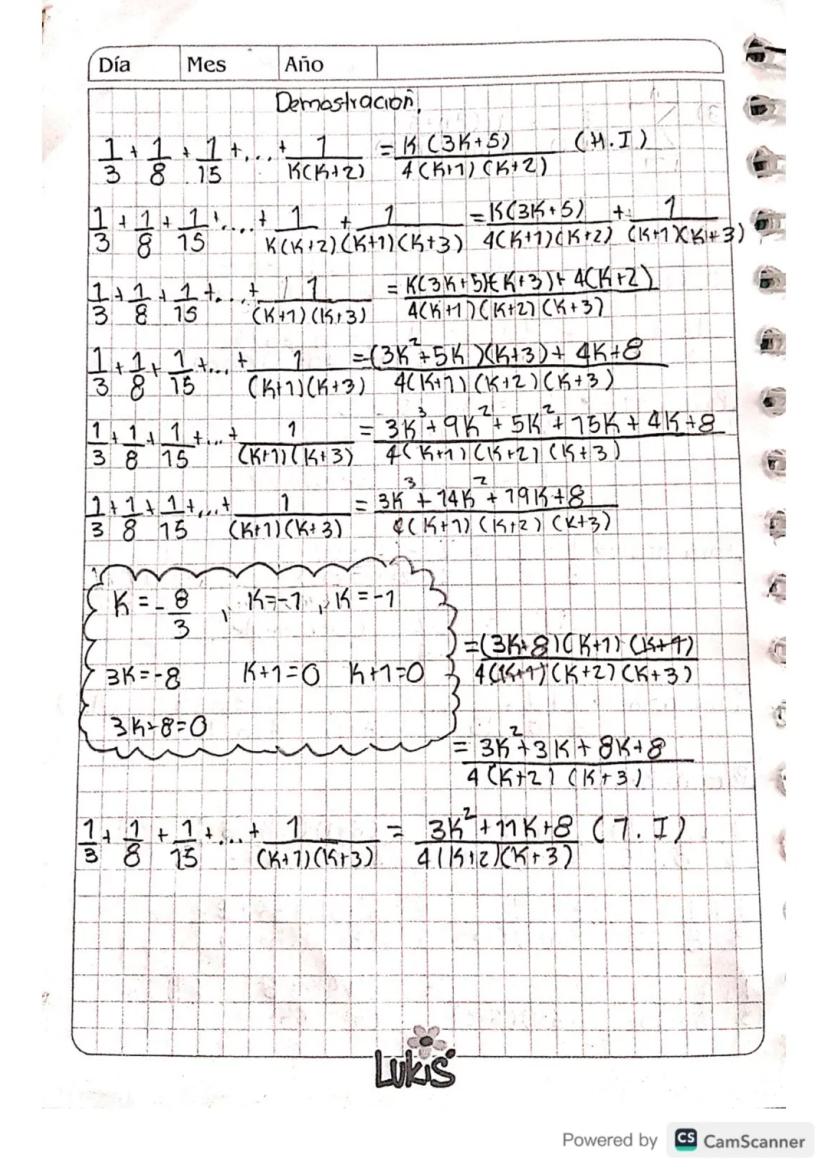 Día Mes Año
Demostración,
1/3 + 1/8 + 1/15 + ... + 1/K(K+2) = K(3K+5)/4(K+1)(K+2) (H.I)
1/3 + 1/8 + 1/15 + ... + 1/K(K+2) + 1/(K+1)(K+3) = K(3K+5)/4(K+1)(K+2) + 1/(K+1)(K+3)
1/3 + 1/8 + 1/15 + ... + 1/(K+1)(K+3) = K(3K+5)(K+3)+4(K+2)/4(K+1)(K+2)(K+3)
1/3 + 1/8 + 1/15 + ... + 1/(K+1)(K+3) = (3K²+5K)(K+3)+4K+8/4(K+1)(K+2)(K+3)
1/3 + 1/8 + 1/15 + ... + 1/(K+1)(K+3) = 3K³+9K²+5K²+15K+4K+8/4(K+1)(K+2)(K+3)
1/3 + 1/8 + 1/15 + ... + 1/(K+1)(K+3) = 3K³+14K²+19K+8/4(K+1)(K+2)(K+3)
K = -8/3, K=-1, K=-1
3K=-8 K+1=0 K+1=0
3K+8=0
= (3K+8)(K+1)(K+1)/4(K+1)(K+2)(K+3)
= 3K²+3K+8K+8/4(K+2)(K+3)
1/3 + 1/8 + 1/15 + ... + 1/(K+1)(K+3) = 3K²+11K+8/4(K+2)(K+3) (T.I)
LUKIS
Powered by CS CamScanner